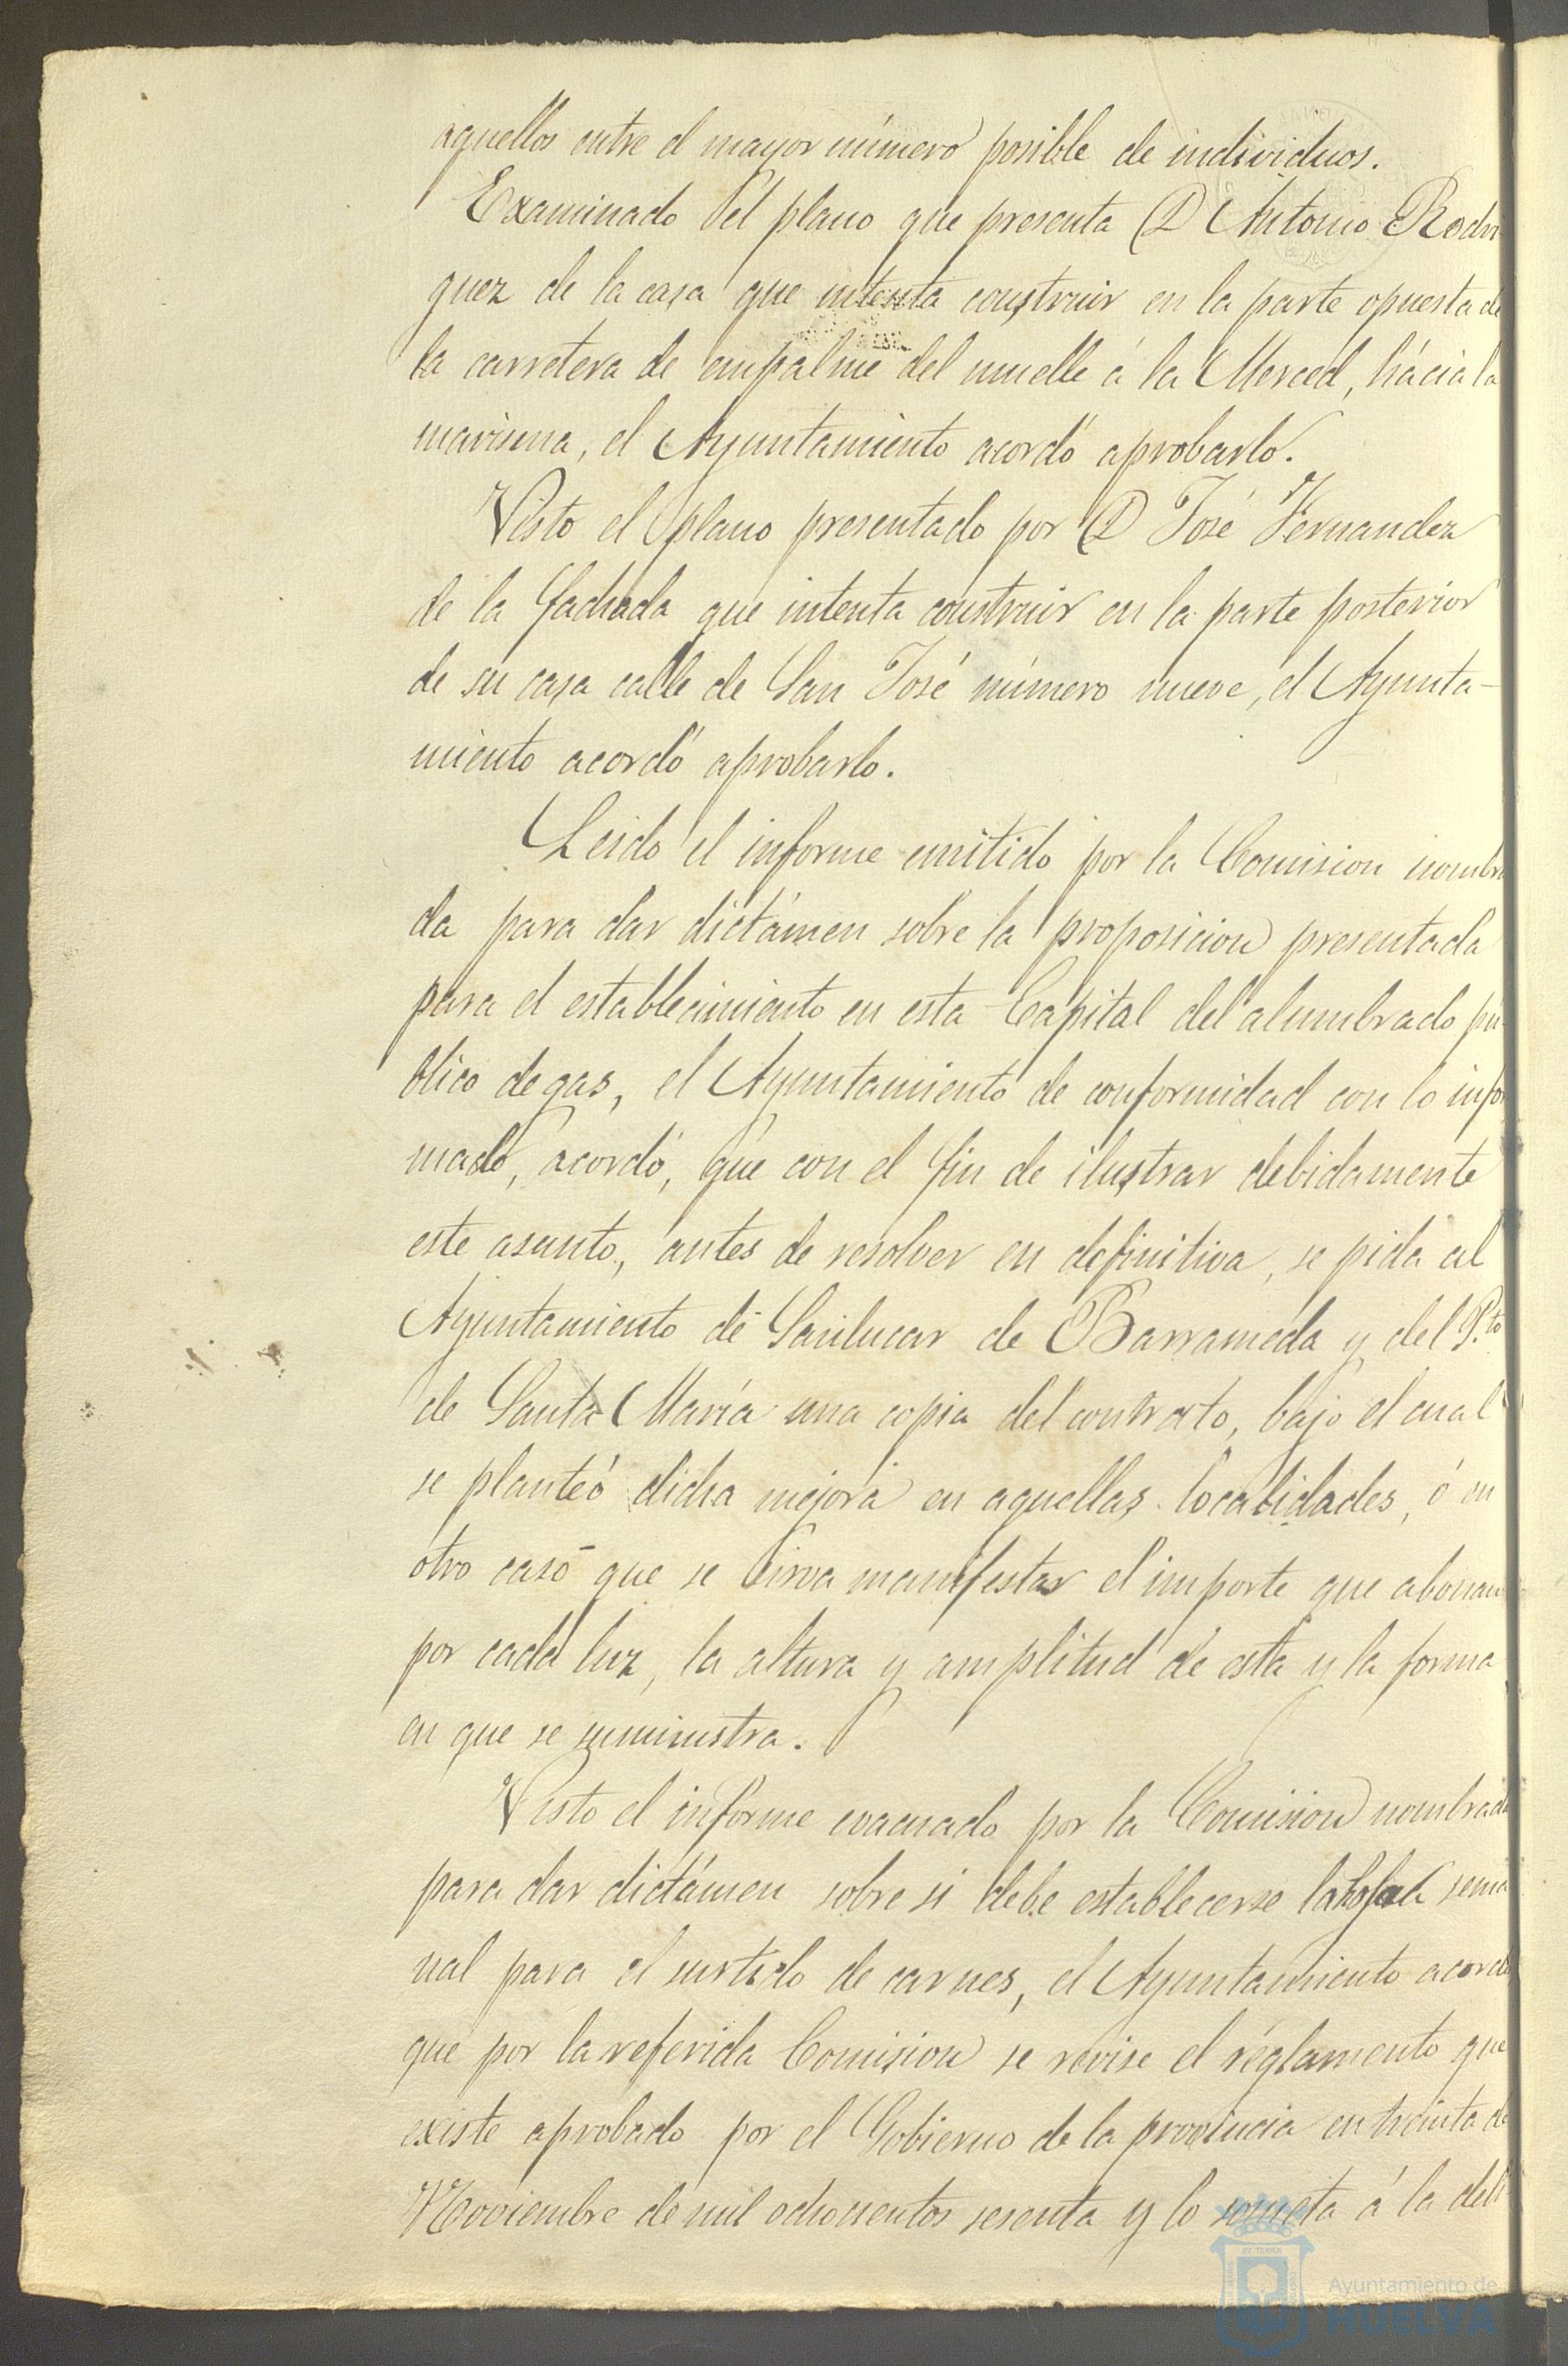 aquellos entre el mayor número posible de individuos.
Examinado el plano que presenta D Antonio Rodri
guez de la casa que intenta construir en la parte opuesta de
la carretera de empalme del muelle á la Merced, hácia la
marisma, el Ayuntamiento acordó aprobarlo.
Visto el plano presentado por D José Fernandez
de la fachada que intenta construir en la parte posterior
de su casa calle de San José número nueve, el Ayunta-
miento acordó aprobarlo.
Leido el informe emitido por la Comision nombra
da para dar dictámen sobre la proposicion presentada
para el establecimiento en esta Capital del alumbrado pú
blico de gas, el Ayuntamiento de conformidad con lo infor
mado, acordó, que con el fin de ilustrar debidamente
este asunto, antes de resolver en definitiva, se pida al
Ayuntamiento de Sanlucar de Barrameda y del P.to
de Santa María una copia del contrato, bajo el cual
se planteó dicha mejora en aquellas localidades, ó en
otro caso que se sirva manifestar el importe que abonan
por cada luz, la altura y amplitud de esta y la forma
en que se suministra.
Visto el informe evacuado por la Comision nombrada
para dar dictámen sobre si debe establecerse la sema
nal para el surtido de carnes, el Ayuntamiento acordó
que por la referida Comision se revise el reglamento que
existe aprobado por el Gobierno de la provincia en treinta de
Noviembre de mil ochocientos sesenta y lo someta á la deli
Ayuntamiento de
HUELVA